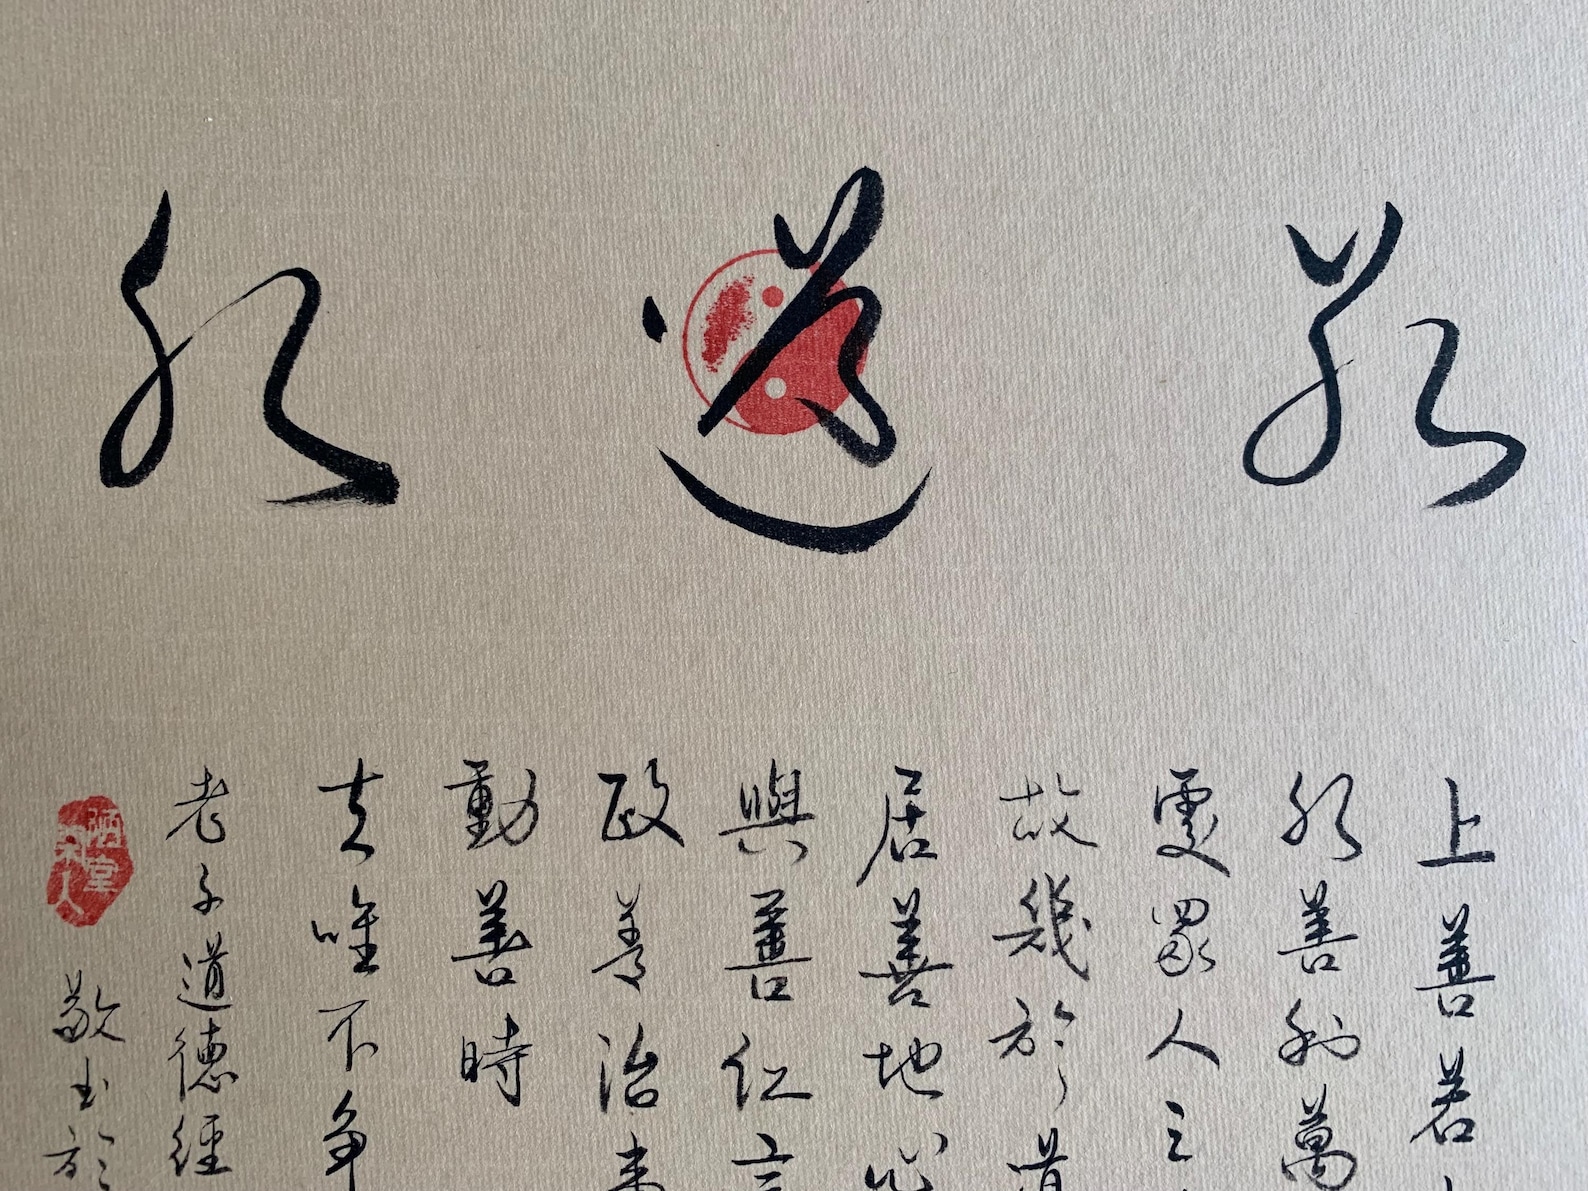 道
水
上善若
水善利萬
處眾人之
故幾於道
居善地心
與善仁言
政善治
動善時
夫唯不爭
老子道德經
敬書於